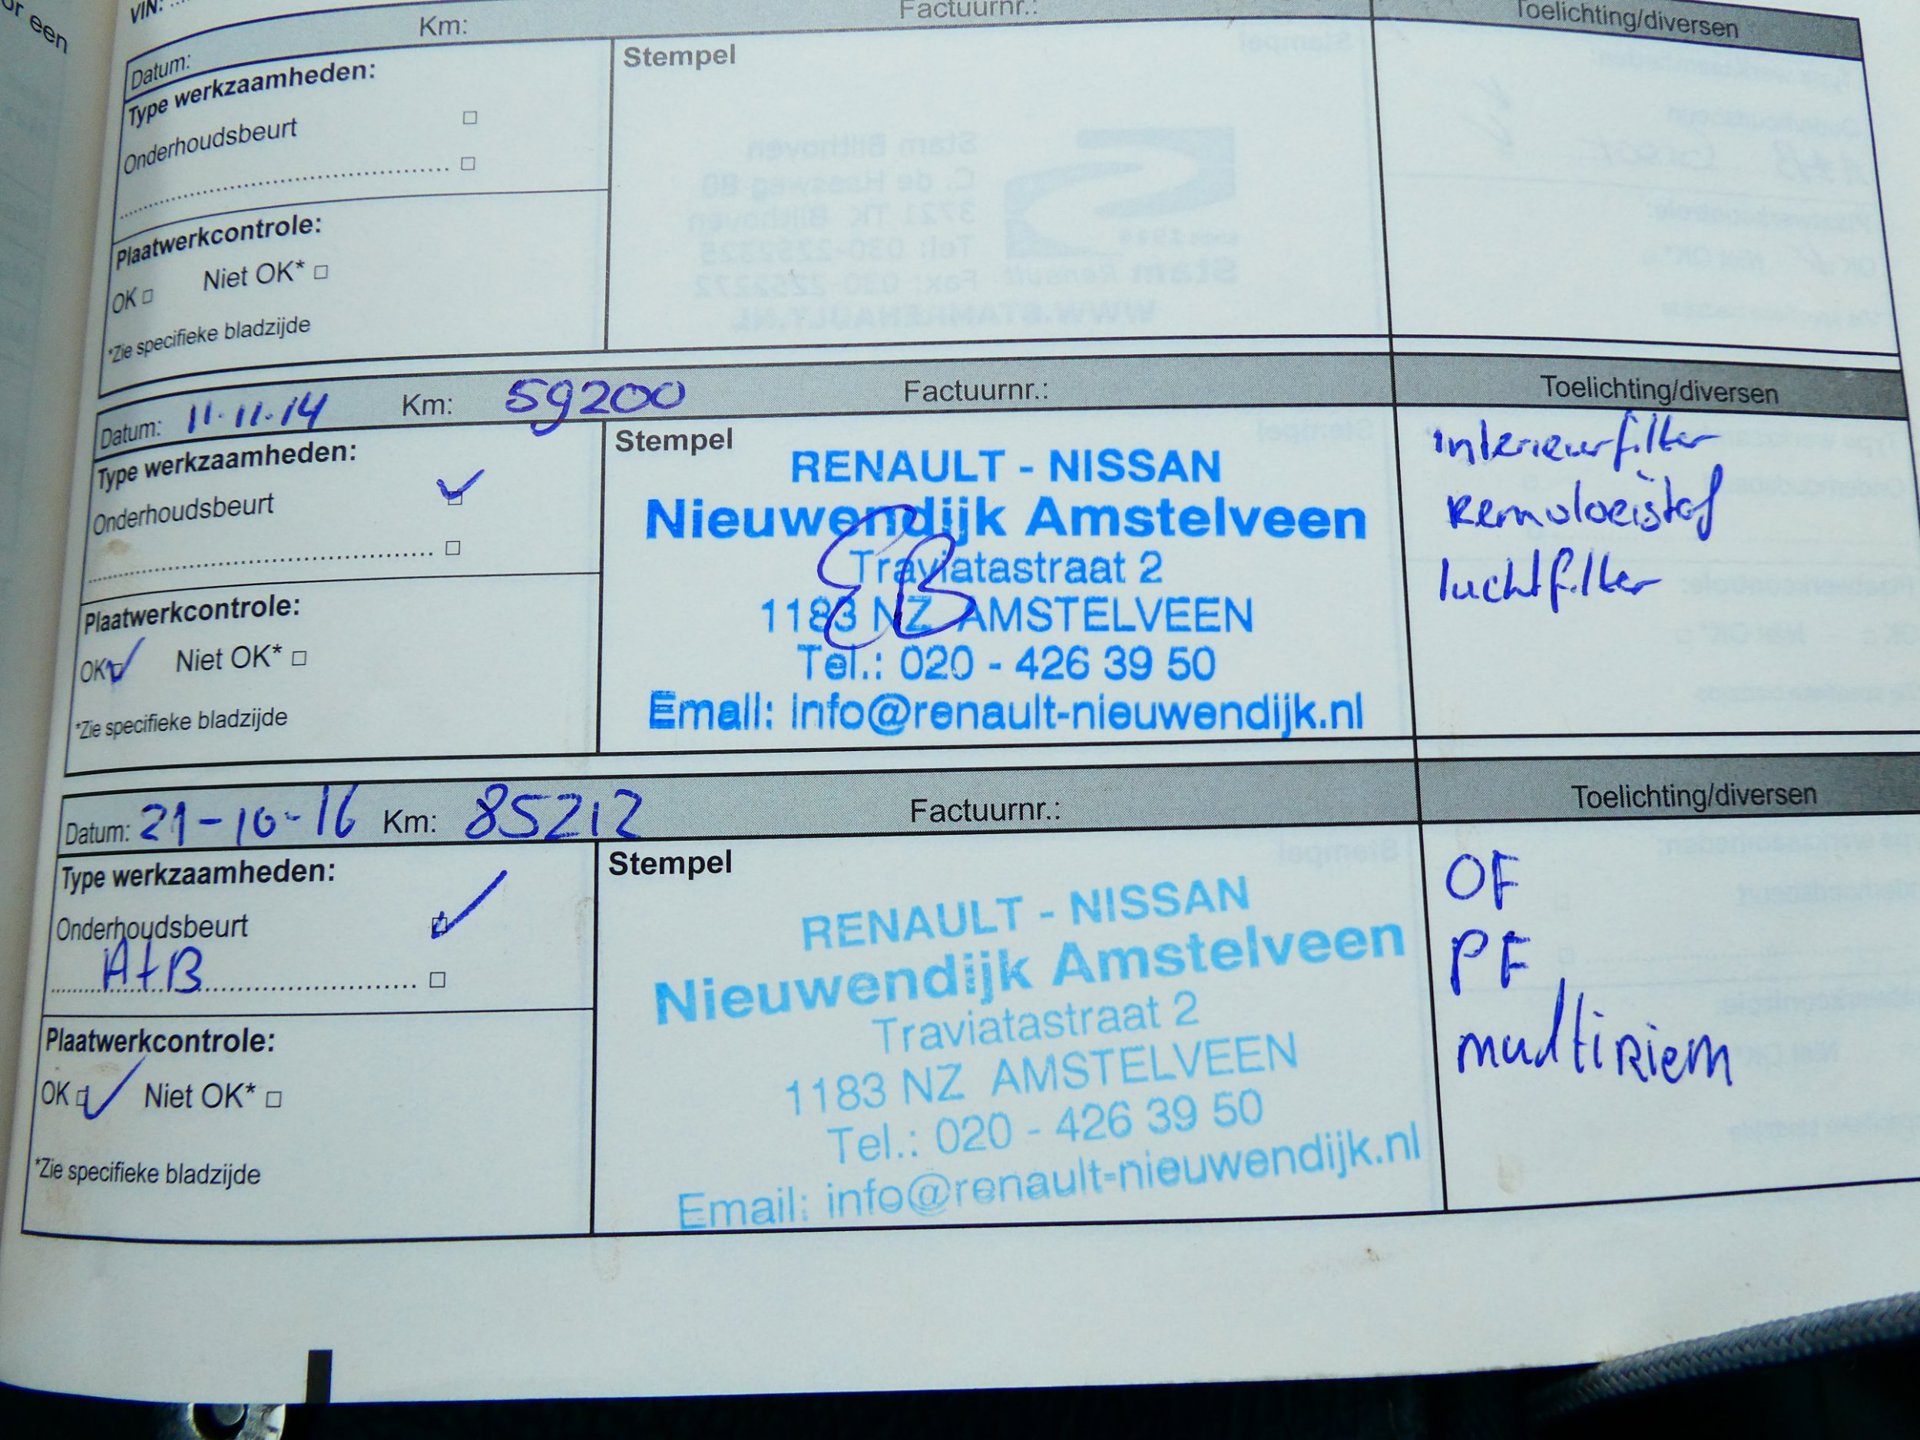 or een
VIN:
Datum: Km: Factuurnr.: Toelichting/diversen
Type werkzaamheden:
Stempel
Onderhoudsbeurt
Plaatwerkcontrole:
OK Niet OK*
*Zie specifieke bladzijde
Datum: 11.11.14 Km: 59200 Factuurnr.: Toelichting/diversen
Type werkzaamheden:
Onderhoudsbeurt
Plaatwerkcontrole:
OK Niet OK*
*Zie specifieke bladzijde
Stempel
RENAULT - NISSAN
Nieuwendijk Amstelveen
Traviatastraat 2
1183 NZ AMSTELVEEN
Tel.: 020 - 426 39 50
Email: info@renault-nieuwendijk.nl
interieurfilter
Remvloeistof
luchtfilter
Datum: 21-10-16 Km: 85212 Factuurnr.: Toelichting/diversen
Type werkzaamheden:
Onderhoudsbeurt
A+B
Plaatwerkcontrole:
OK Niet OK*
*Zie specifieke bladzijde
Stempel
RENAULT - NISSAN
Nieuwendijk Amstelveen
Traviatastraat 2
1183 NZ AMSTELVEEN
Tel.: 020 - 426 39 50
Email: info@renault-nieuwendijk.nl
OF
PF
multiriem